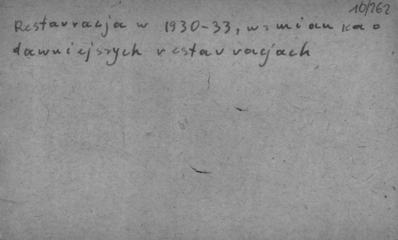 10/262
Restauracja w 1930-33, wzmianka o
dawniejszych restauracjach